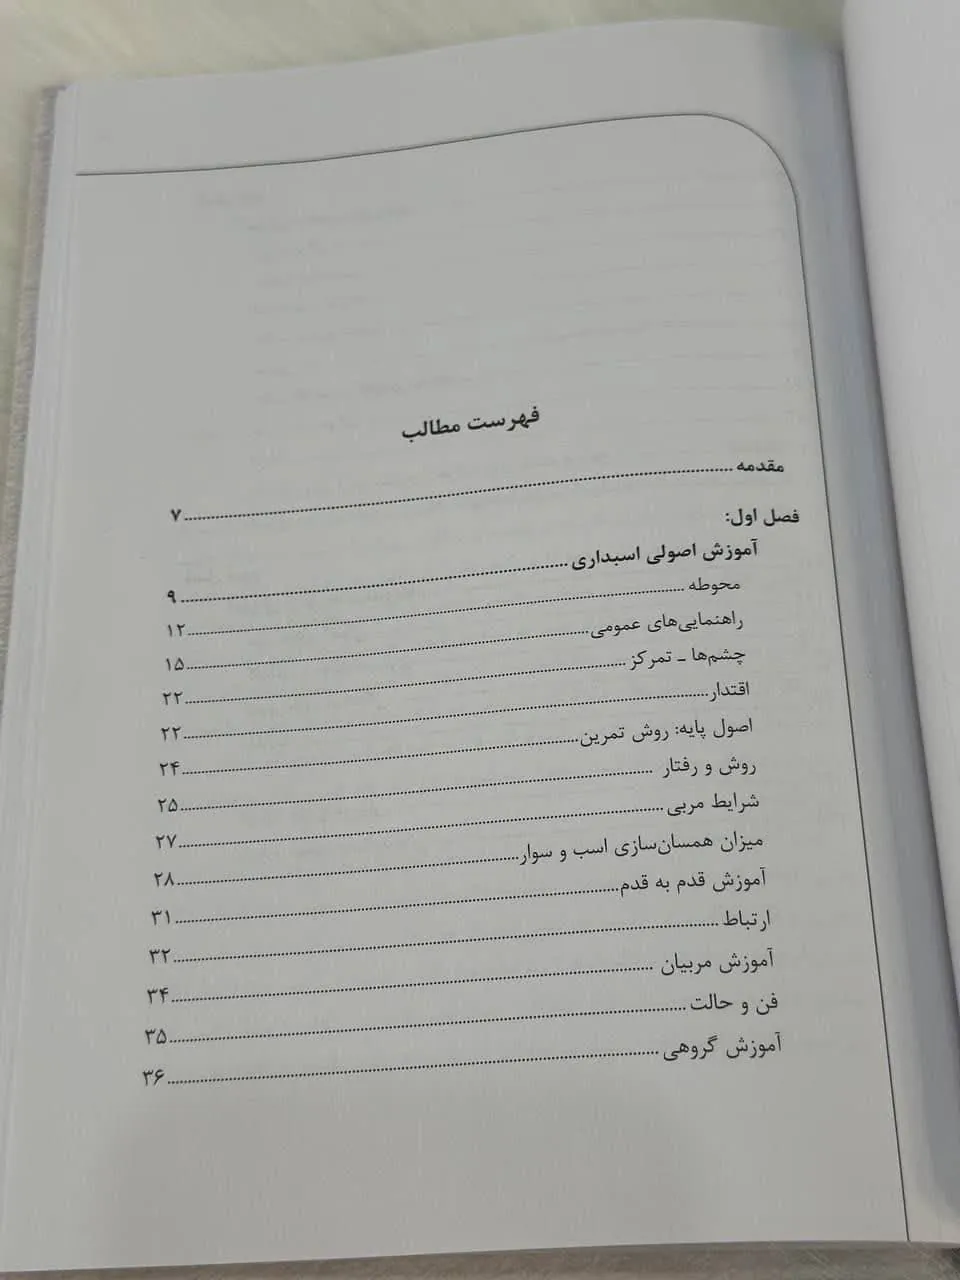 فهرست مطالب
مقدمه ........ ۷
فصل اول:
آموزش اصولی اسبداری ........ ۹
محوطه ........ ۱۲
راهنمایی‌های عمومی ........ ۱۵
چشم‌ها ـ تمرکز ........ ۲۲
اقتدار ........ ۲۲
اصول پایه: روش تمرین ........ ۲۴
روش و رفتار ........ ۲۵
شرایط مربی ........ ۲۷
میزان همسان‌سازی اسب و سوار ........ ۲۸
آموزش قدم به قدم ........ ۳۱
ارتباط ........ ۳۲
آموزش مربیان ........ ۳۴
فن و حالت ........ ۳۵
آموزش گروهی ........ ۳۶